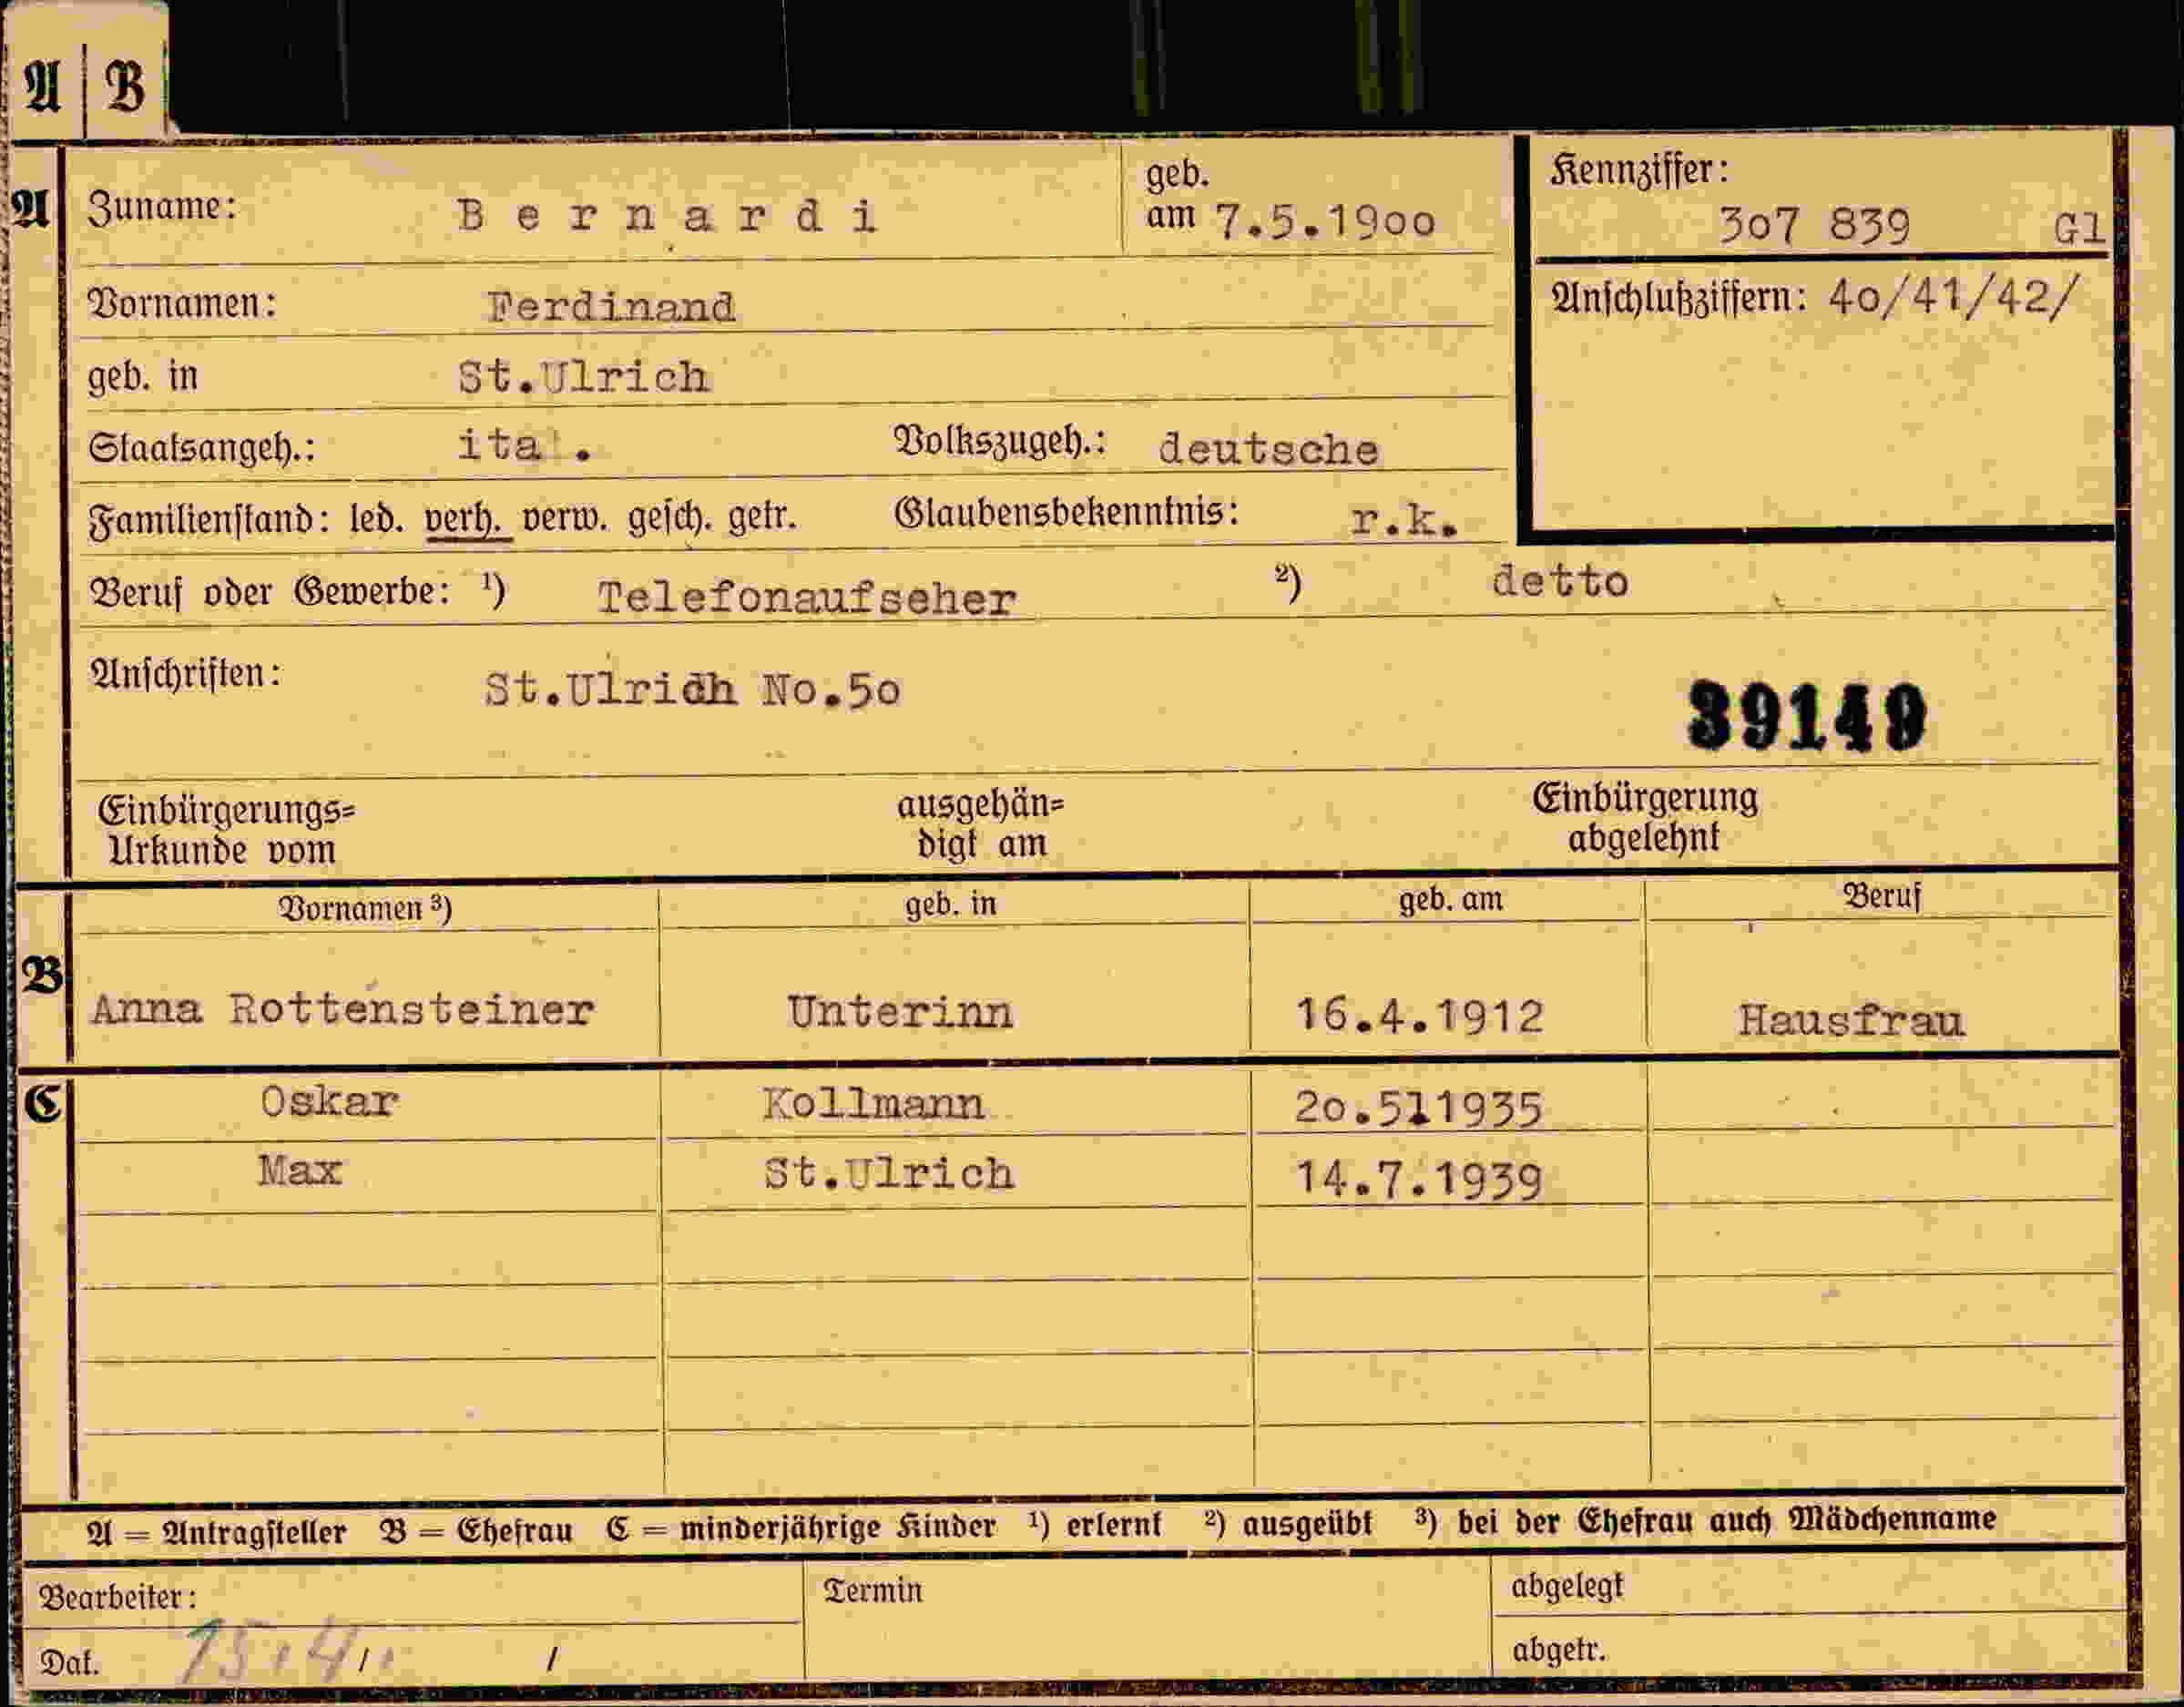 A B
A Zuname: Bernardi geb. am 7.5.1900 Kennziffer: 307 839 Gl
Vornamen: Ferdinand Anschlußziffern: 40/41/42/
geb. in St.Ulrich
Staatsangeh.: ital. Volkszugeh.: deutsche
Familienstand: led. verh. verw. gesch. getr. Glaubensbekenntnis: r.k.
Beruf oder Gewerbe: ¹) Telefonaufseher ²) detto
Anschriften: St.Ulrich No.50
39149
Einbürgerungs= ausgehän= Einbürgerung
Urkunde vom digt am abgelehnt
Vornamen ³) geb. in geb. am Beruf
B
Anna Rottensteiner Unterinn 16.4.1912 Hausfrau
C Oskar Kollmann 20.5.1935
Max St.Ulrich 14.7.1939
A = Antragsteller B = Ehefrau C = minderjährige Kinder ¹) erlernt ²) ausgeübt ³) bei der Ehefrau auch Mädchenname
Bearbeiter: Termin abgelegt
Dat. abgetr.